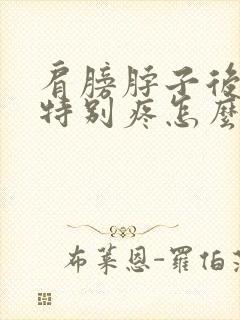 肩膀脖子後
特别疼怎麼
布莱恩-羅伯